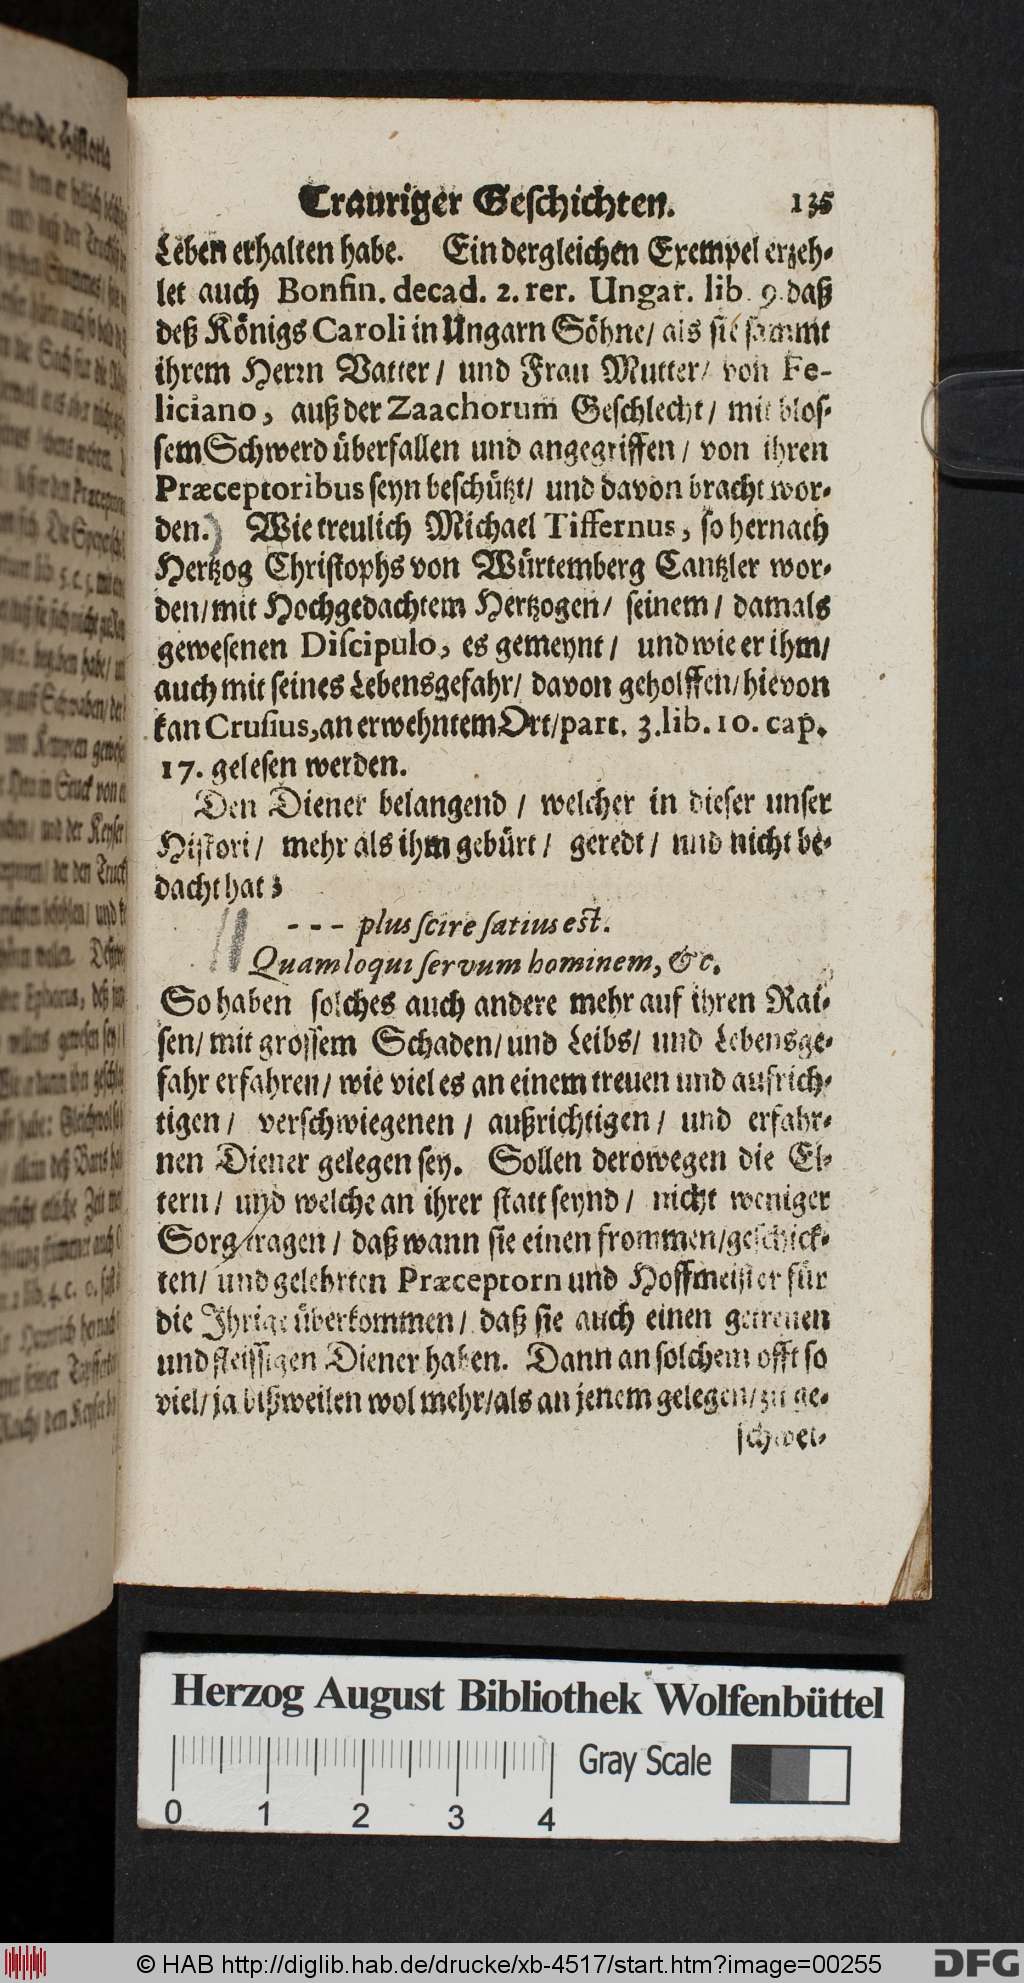 Trauriger Geschichten. 135
Leben erhalten habe. Ein dergleichen Exempel erzeh-
let auch Bonfin. decad. 2. rer. Ungar. lib. 9. daß
deß Königs Caroli in Ungarn Söhne/ als sie sammt
ihrem Herrn Vatter/ und Frau Mutter/ von Fe-
liciano, auß der Zaachorum Geschlecht/ mit blos-
sem Schwerd überfallen und angegriffen/ von ihren
Præceptoribus seyn beschützt/ und davon bracht wor-
den.) Wie treulich Michael Tiffernus, so hernach
Hertzog Christophs von Würtemberg Cantzler wor-
den/ mit Hochgedachtem Hertzogen/ seinem/ damals
gewesenen Discipulo, es gemeynt/ und wie er ihm/
auch mit seines Lebensgefahr/ davon geholffen/ hievon
kan Crusius, an erwehntem Ort/ part. 3. lib. 10. cap.
17. gelesen werden.
Den Diener belangend/ welcher in dieser unser
Histori/ mehr als ihm gebürt/ geredt/ und nicht be-
dacht hat;
--- plus scire satius est.
Quam loqui servum hominem, &c.
So haben solches auch andere mehr auf ihren Rai-
sen/ mit grossem Schaden/ und Leibs/ und Lebensge-
fahr erfahren/ wie viel es an einem treuen und aufrich-
tigen/ verschwiegenen/ außrichtigen/ und erfahr-
nen Diener gelegen sey. Sollen derowegen die El-
tern/ und welche an ihrer statt seynd/ nicht weniger
Sorg tragen/ daß wann sie einen frommen/ geschick-
ten/ und gelehrten Præceptorn und Hoffmeister für
die Ihrige überkommen/ daß sie auch einen getreuen
und fleissigen Diener haben. Dann an solchem offt so
viel/ ja bißweilen wol mehr/ als an jenem gelegen/ zu ge-
schwei-
Herzog August Bibliothek Wolfenbüttel
Gray Scale
0 1 2 3 4
© HAB http://diglib.hab.de/drucke/xb-4517/start.htm?image=00255
DFG